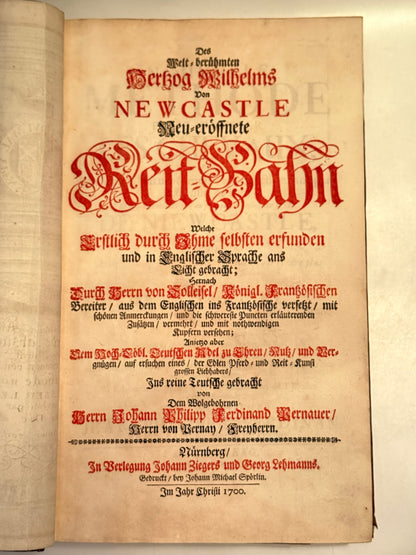 Des
Welt-berühmten
Hertzog Wilhelms
Von
NEWCASTLE
Neu-eröffnete
Reit-Bahn
Welche
Erstlich durch Ihme selbsten erfunden
und in Englischer Sprache ans
Licht gebracht;
Hernach
Durch Herrn von Solleisel/ Königl. Frantzösischen
Bereiter/ aus dem Englischen ins Frantzösische versetzt/ mit
schönen Anmerckungen/ und die schwereste Puncten erläuterenden
Zusätzen/ vermehrt/ und mit nothwendigen
Kupfern versehen;
Anietzo aber
Dem Hoch-Löbl. Teutschen Adel zu Ehren/ Nutz/ und Ver-
gnügen/ auf ersuchen eines/ der Edlen Pferd- und Reit-Kunst
grossen Liebhabers/
Ins reine Teutsche gebracht
von
Dem Wolgebohrnen
Herrn Johann Philipp Ferdinand Pernauer/
Herrn von Pernay/ Freyherrn.
Nürnberg/
In Verlegung Johann Ziegers und Georg Lehmanns.
Gedruckt/ bey Johann Michael Spörlin.
Im Jahr Christi 1700.